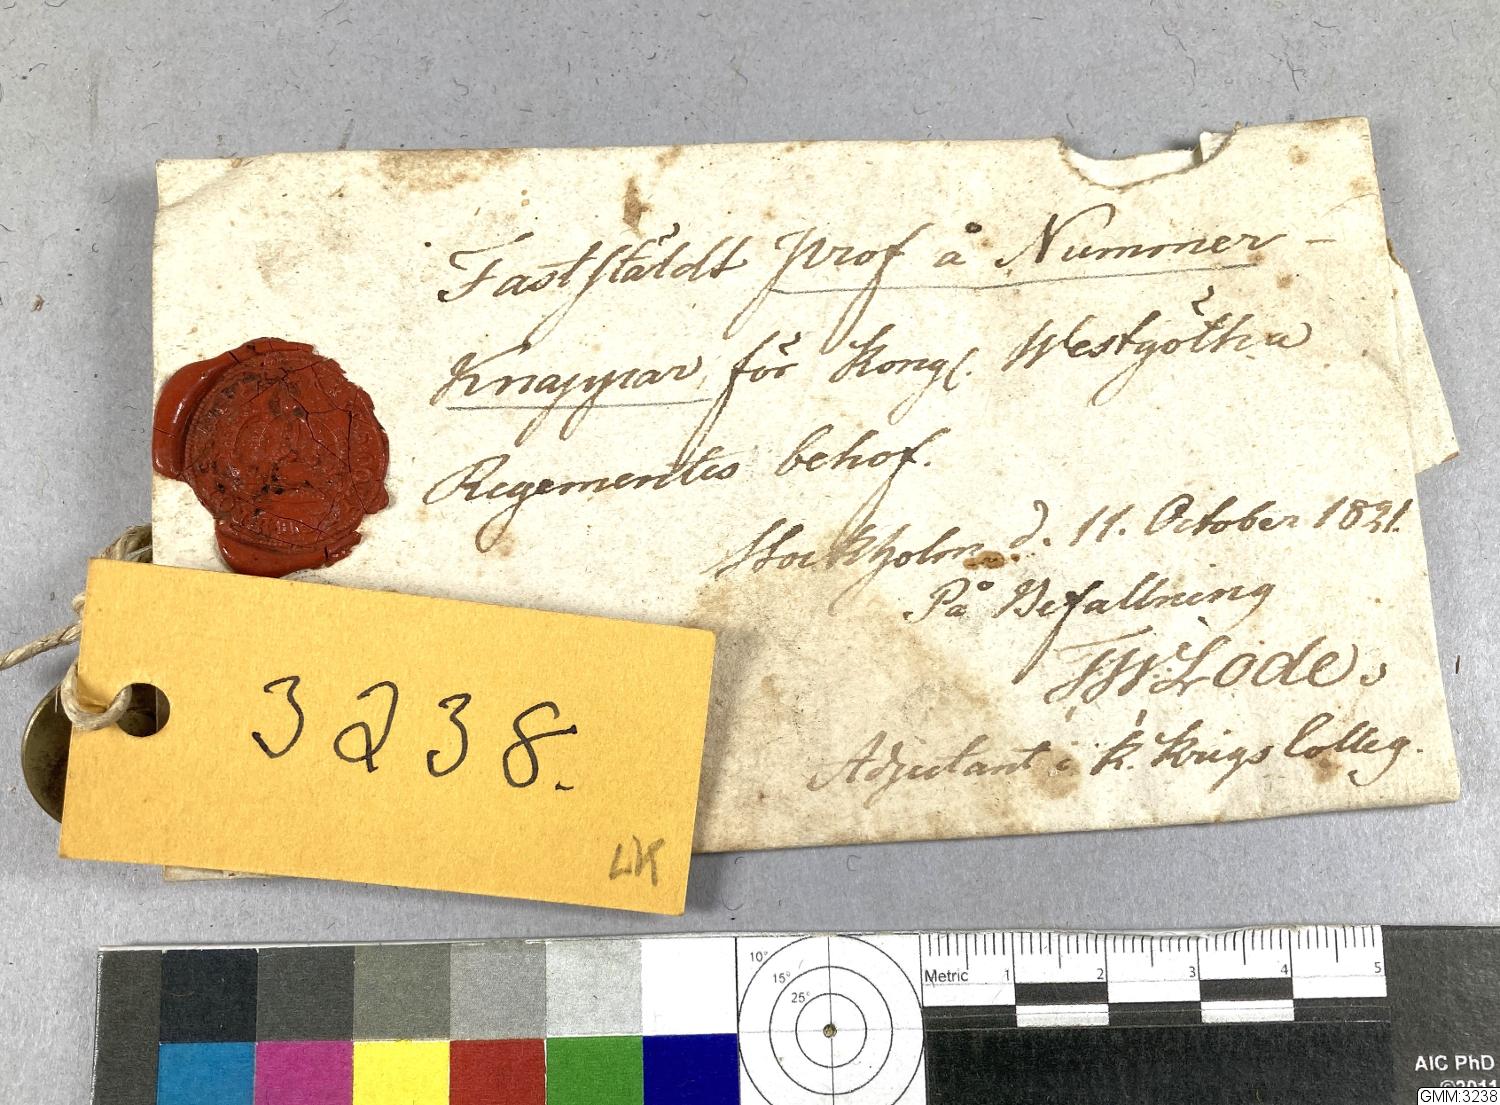 Fastställdt Prof å Nummer-
Knappar för Kongl. Westgötha
Regementes behof.
Stockholm d. 11. October 1821.
På Befallning
Lode
Adjutant i K. Krigs Colleg.
3238.
LK
10°
15°
25°
Metric 1 2 3 4 5
AIC PhD
©2011
GMM:3238